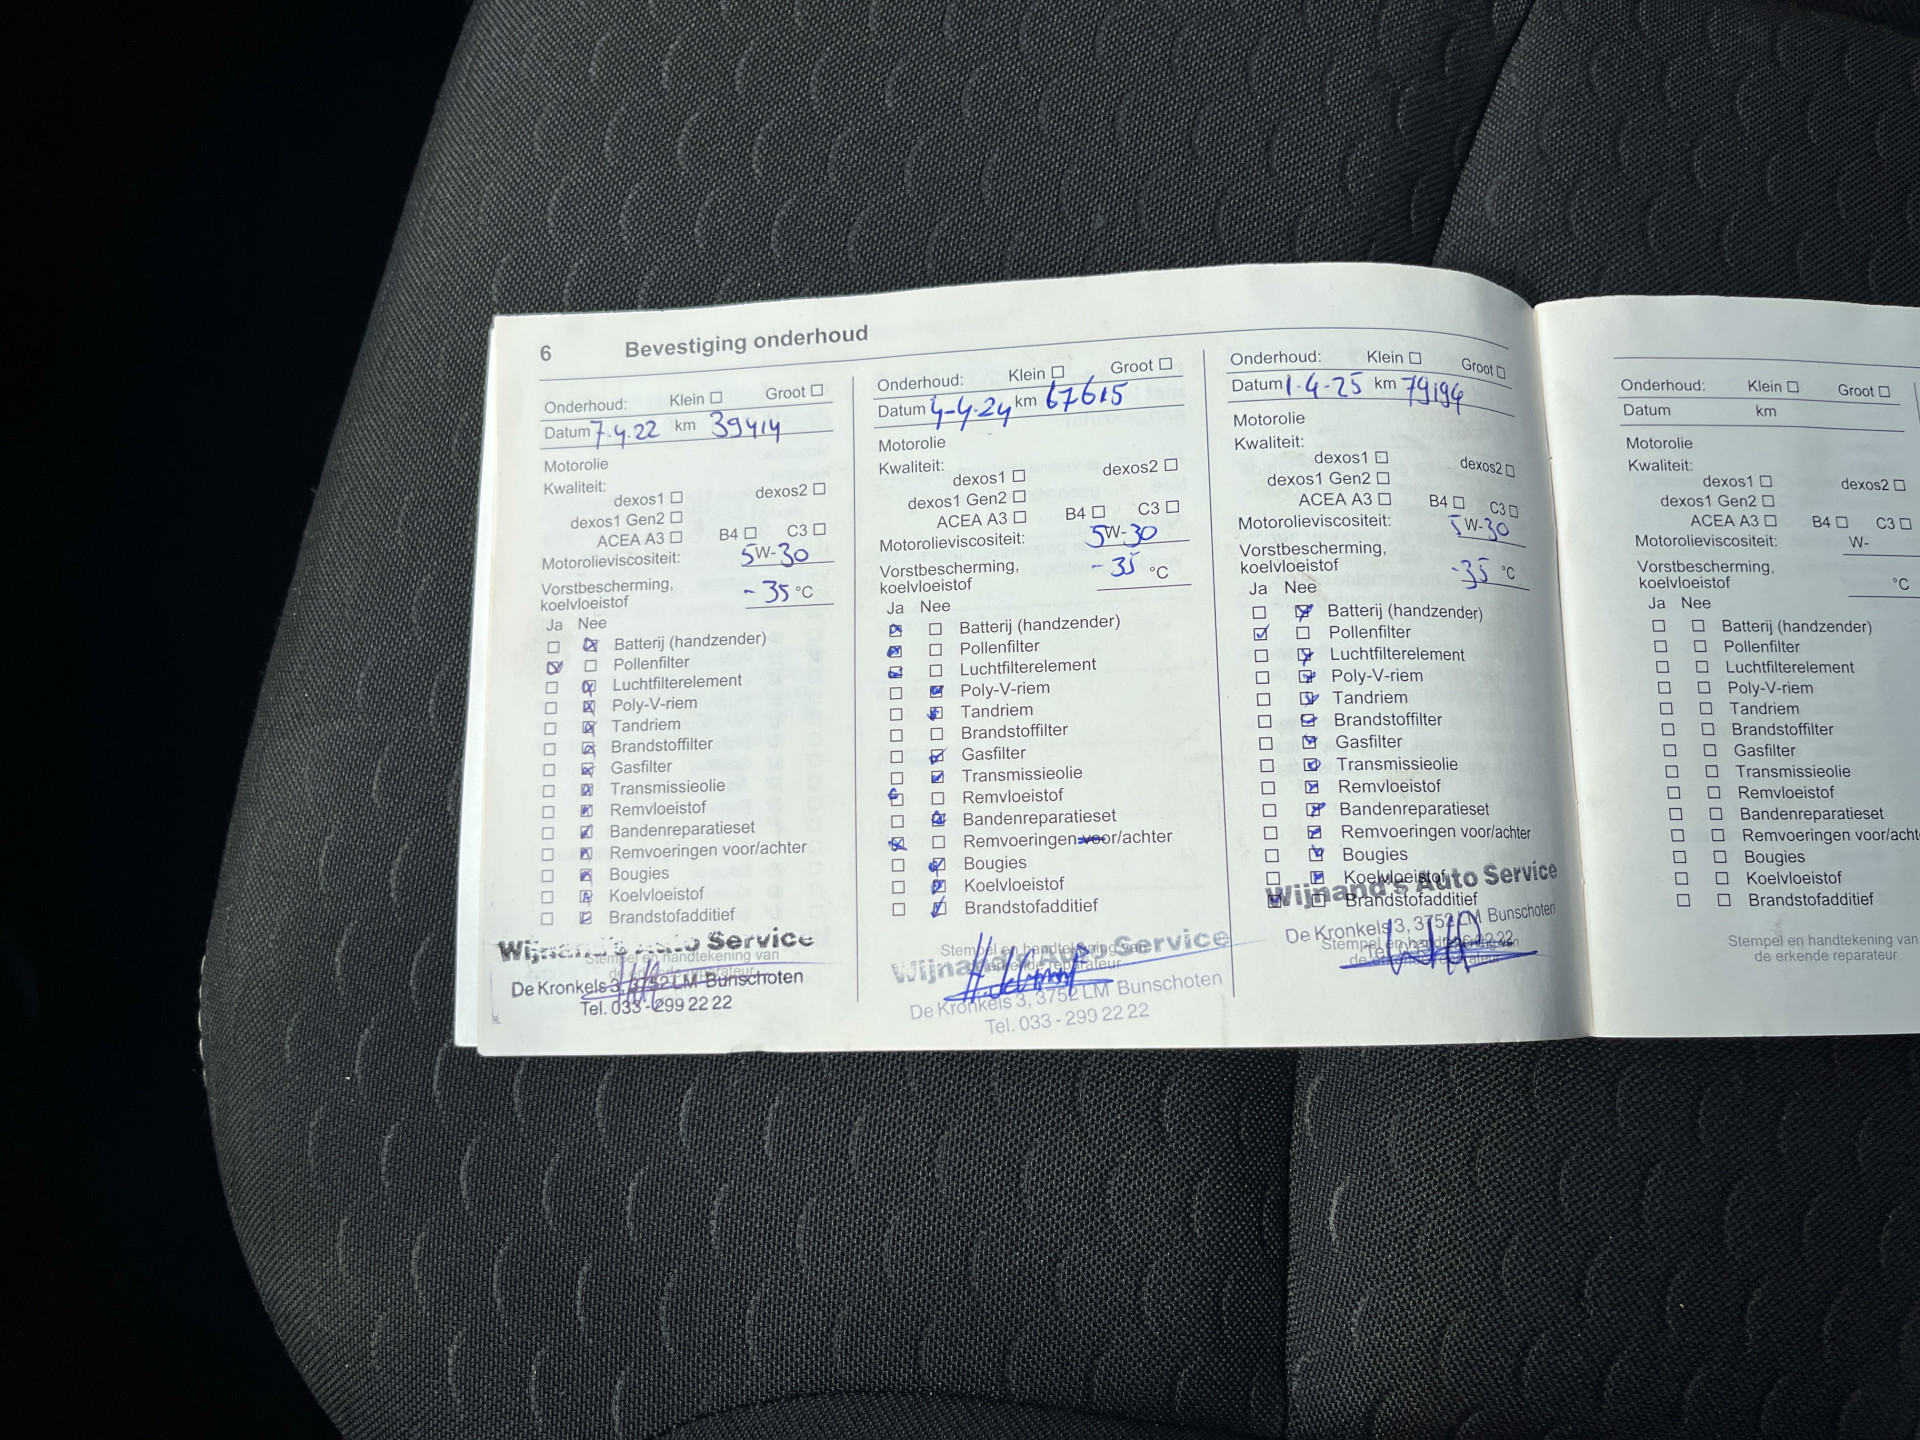 6 Bevestiging onderhoud
Onderhoud: Klein Groot
Datum 7.4.22 km 39414
Motorolie
Kwaliteit:
dexos1 dexos2
dexos1 Gen2
ACEA A3 B4 C3
Motorolieviscositeit: 5W-30
Vorstbescherming,
koelvloeistof -35 °C
Ja Nee
Batterij (handzender)
Pollenfilter
Luchtfilterelement
Poly-V-riem
Tandriem
Brandstoffilter
Gasfilter
Transmissieolie
Remvloeistof
Bandenreparatieset
Remvoeringen voor/achter
Bougies
Koelvloeistof
Brandstofadditief
Wijnand's Auto Service
Stempel en handtekening van
de erkende reparateur
De Kronkels 3, 3752 LM Bunschoten
Tel. 033 - 299 22 22
Onderhoud: Klein Groot
Datum 4-4-24 km 67615
Motorolie
Kwaliteit:
dexos1 dexos2
dexos1 Gen2
ACEA A3 B4 C3
Motorolieviscositeit: 5W-30
Vorstbescherming,
koelvloeistof -35 °C
Ja Nee
Batterij (handzender)
Pollenfilter
Luchtfilterelement
Poly-V-riem
Tandriem
Brandstoffilter
Gasfilter
Transmissieolie
Remvloeistof
Bandenreparatieset
Remvoeringen voor/achter
Bougies
Koelvloeistof
Brandstofadditief
Stempel en handtekening van
Wijnand's Auto Service
de erkende reparateur
De Kronkels 3, 3752 LM Bunschoten
Tel. 033 - 299 22 22
Onderhoud: Klein Groot
Datum 1-4-25 km 79194
Motorolie
Kwaliteit:
dexos1 dexos2
dexos1 Gen2
ACEA A3 B4 C3
Motorolieviscositeit: 5W-30
Vorstbescherming,
koelvloeistof -35 °C
Ja Nee
Batterij (handzender)
Pollenfilter
Luchtfilterelement
Poly-V-riem
Tandriem
Brandstoffilter
Gasfilter
Transmissieolie
Remvloeistof
Bandenreparatieset
Remvoeringen voor/achter
Bougies
Koelvloeistof
Wijnand's Auto Service
Brandstofadditief
De Kronkels 3, 3752 LM Bunschoten
Stempel en handtekening van
de erkende reparateur
Onderhoud: Klein Groot
Datum km
Motorolie
Kwaliteit:
dexos1 dexos2
dexos1 Gen2
ACEA A3 B4 C3
Motorolieviscositeit: W-
Vorstbescherming,
koelvloeistof °C
Ja Nee
Batterij (handzender)
Pollenfilter
Luchtfilterelement
Poly-V-riem
Tandriem
Brandstoffilter
Gasfilter
Transmissieolie
Remvloeistof
Bandenreparatieset
Remvoeringen voor/acht
Bougies
Koelvloeistof
Brandstofadditief
Stempel en handtekening van
de erkende reparateur